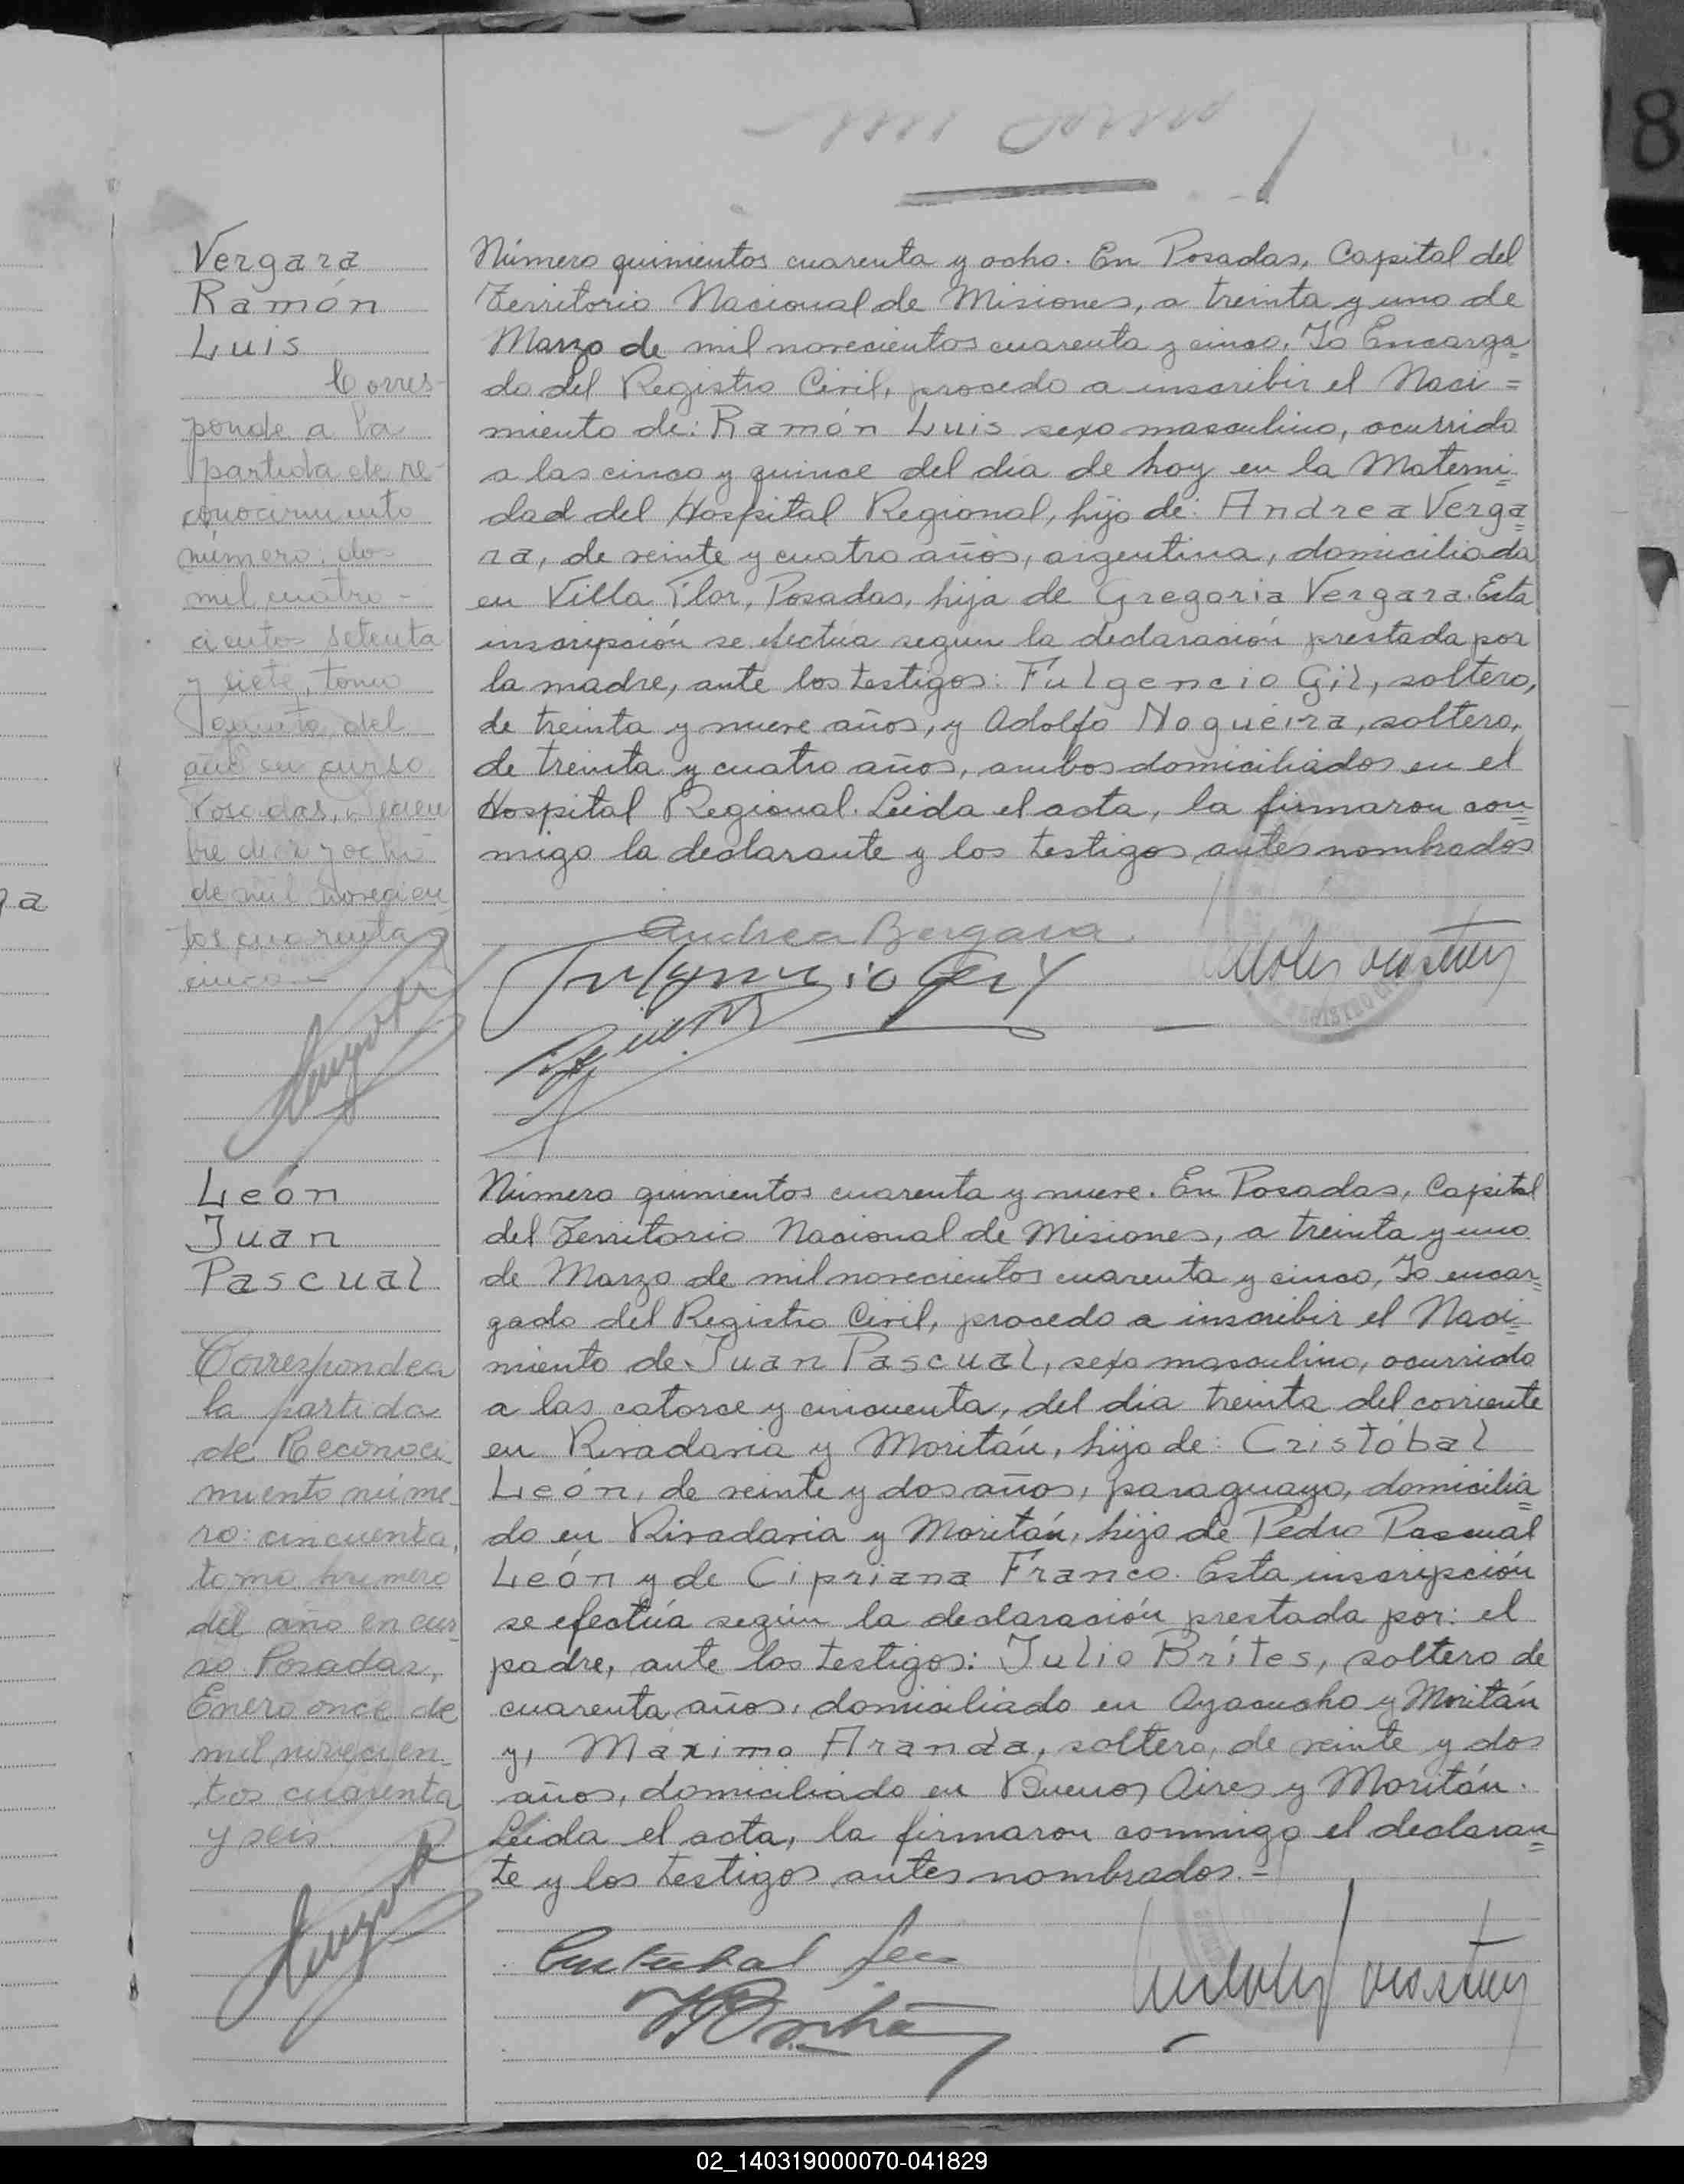 Vergara
Ramón
Luis
Corres-
ponde a la
partida de re-
conocimiento
número: dos
mil cuatro-
cientos setenta
y siete, tomo
quinto del
año en curso
Posadas, Diciem
bre diez y ocho
de mil novecien
tos cuarenta y
cinco
Número quinientos cuarenta y ocho. En Posadas, Capital del
Territorio Nacional de Misiones, a treinta y uno de
Marzo de mil novecientos cuarenta y cinco, Yo Encarga=
do del Registro Civil, procedo a inscribir el Naci=
miento de: Ramón Luis sexo masculino, ocurrido
a las cinco y quince del día de hoy en la Materni=
dad del Hospital Regional, hijo de: Andrea Verga=
ra, de veinte y cuatro años, argentina, domiciliada
en Villa Flor, Posadas, hija de Gregoria Vergara. Esta
inscripción se efectúa segun la declaración prestada por
la madre, ante los testigos: Fulgencio Gil, soltero,
de treinta y nueve años, y Adolfo Nogueira, soltero,
de treinta y cuatro años, ambos domiciliados en el
Hospital Regional. Leida el acta, la firmaron con=
migo la declarante y los testigos antes nombrados
Andrea Bergara.
Fulgencio Gil
León
Juan
Pascual
Corresponde a
la partida
de Reconoci
miento núme
ro: cincuenta,
tomo primero
del año en cur
so Posadas,
Enero once de
mil novecien
tos cuarenta
y seis
Número quinientos cuarenta y nueve. En Posadas, Capital
del Territorio Nacional de Misiones, a treinta y uno
de Marzo de mil novecientos cuarenta y cinco, Yo encar=
gado del Registro Civil, procedo a inscribir el Naci=
miento de Juan Pascual, sexo masculino, ocurrido
a las catorce y cincuenta, del día treinta del corriente
en Rivadavia y Moritán, hijo de: Cristóbal
León, de veinte y dos años, paraguayo, domicilia=
do en Rivadavia y Moritán, hijo de Pedro Pascual
León y de Cipriana Franco. Esta inscripción
se efectúa según la declaración prestada por: el
padre, ante los testigos: Julio Brítes, soltero de
cuarenta años, domiciliado en Ayacucho y Moritán
y, Máximo Aranda, soltero, de veinte y dos
años, domiciliado en Buenos Aires y Moritán.
Leida el acta, la firmaron conmigo el declaran=
te y los testigos antes nombrados.=
8
02_140319000070-041829